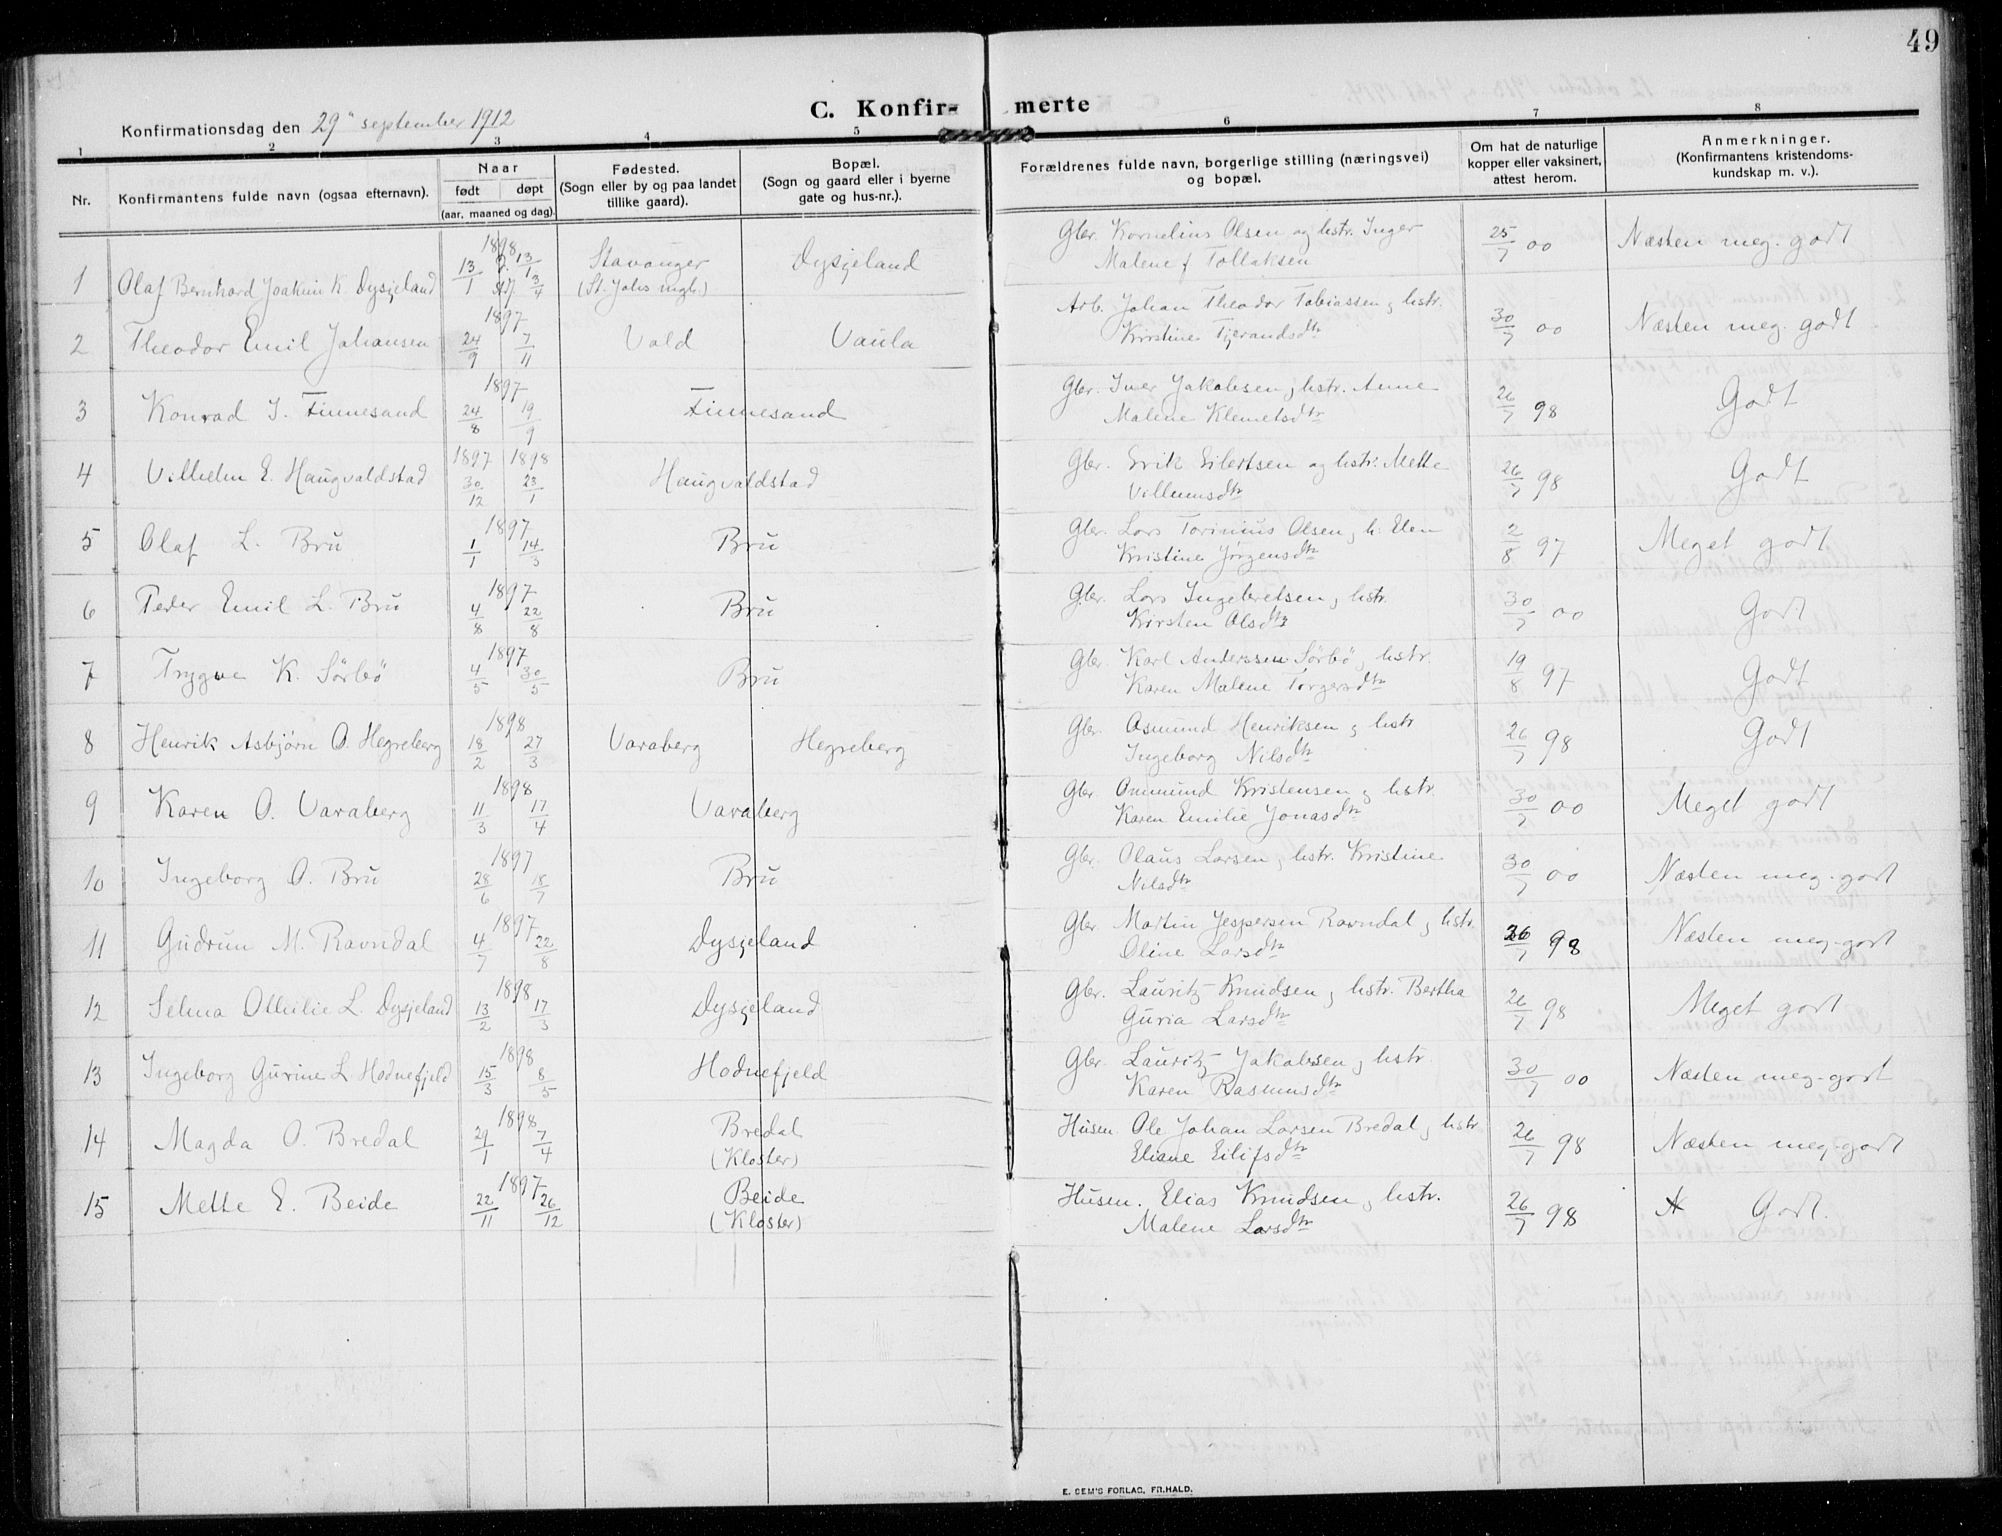 49
C. Konfirmerte
Konfirmationsdag den 29" september 1912
1 2 3 4 5 6 7 8
Nr. Konfirmantens fulde navn (ogsaa efternavn). Naar født døpt (aar, maaned og dag). Fødested. (Sogn eller by og paa landet tillike gaard). Bopæl. (Sogn og gaard eller i byerne gate og hus-nr.). Forældrenes fulde navn, borgerlige stilling (næringsvei) og bopæl. Om hat de naturlige kopper eller vaksinert, attest herom. Anmerkninger. (Konfirmantens kristendoms-kundskap m. v.).
1 Olaf Bernhard Joakim K. Dysjeland 1898 13/1 13/1 3/4 Stavanger (St. Johs mgh.) Dysjeland Gbr. Kornelius Olsen og hstr. Inger Malene f Tollaksen 25/7 00 Næsten meg. godt
2 Theodor Emil Johansen 1897 24/9 7/11 Vold Vaula Arb. Johan Theodor Tobiassen og hstr. Kristine Tjerandsdtr 30/7 00 Næsten meg. godt
3 Konrad I. Finnesand 1897 24/8 19/9 Finnesand Gbr. Iver Jakobsen og hstr. Anne Malene Klemetsdtr 26/7 98 Godt
4 Vilhelm E. Haugvaldstad 1897 30/12 1898 23/1 Haugvaldstad Gbr. Erik Eilertsen og hstr. Mette Villumsdtr 26/7 98 Godt
5 Olaf L. Bru 1897 1/1 14/3 Bru Gbr. Lars Torinius Olsen og h. Elen Kristine Jørgensdtr 2/8 97 Meget godt
6 Peder Emil L. Bru 1897 4/8 22/8 Bru Gbr. Lars Ingebretsen og hstr. Kirsten Olsdtr 30/7 00 Godt
7 Trygve K. Sørbø 1897 4/5 30/5 Bru Gbr. Karl Anderssen Sørbø og hstr. Karen Malene Torgersdtr 19/8 97 Godt
8 Henrik Asbjørn O. Hegreberg 1898 18/2 27/3 Varaberg Hegreberg Gbr. Osmund Henriksen og hstr Ingeborg Nilsdtr 26/7 98 Godt
9 Karen O. Varaberg 1898 11/3 17/4 Varaberg Gbr Ommund Kristensen og hstr. Karen Emilie Jonasdtr 30/7 00 Meget godt
10 Ingeborg O. Bru 1897 28/6 18/7 Bru Gbr. Olaus Larsen og hstr. Kristine Nilsdtr 30/7 00 Næsten meg. godt
11 Gudrun M. Ravndal 1897 4/7 22/8 Dysjeland Gbr Martin Jespersen Ravndal og hstr. Oline Larsdtr 26/7 98 Næsten meg. godt
12 Selma Othilie L. Dysjeland 1898 13/2 17/3 Dysjeland Gbr. Lauritz Knudsen og hstr. Bertha Guria Larsdtr 26/7 98 Meget godt
13 Ingeborg Gurine L. Hodnefjeld 1898 15/3 8/5 Hodnefjeld Gbr. Lauritz Jakobsen og hstr. Karen Rasmusdtr 30/7 00 Næsten meg. godt
14 Magda O. Bredal 1898 29/1 7/4 Bredal (Kloster) Husm. Ole Johan Larsen Bredal og hstr Eliane Eilifsdtr 26/7 98 Næsten meg. godt
15 Mette E. Beide 1897 22/11 26/12 Beide (Kloster) Husm. Elias Knudsen og hstr. Malene Larsdtr 26/7 98 Godt.
E. SEM'S FORLAG, FR.HALD.